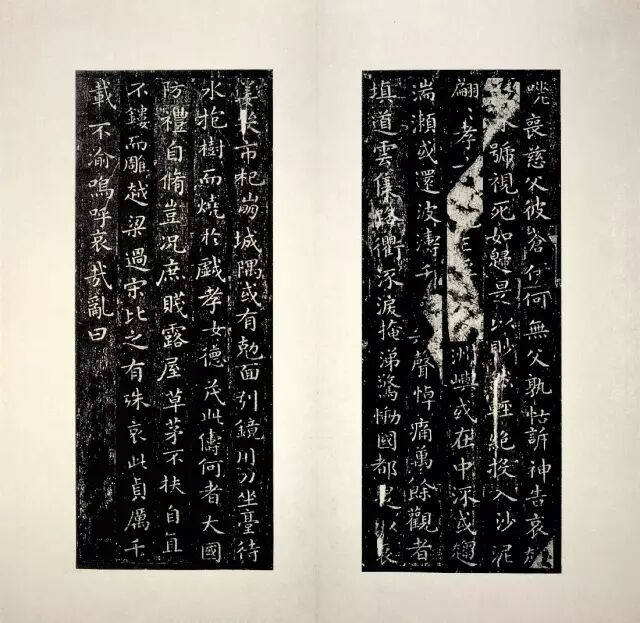 喪慈父彼蒼何無父孰怙訴神告哀
號視死如歸是以眇輕絕投入沙泥
翩〻孝洲嶼或在中流或趨
湍瀨或還波濤千聲悼痛萬餘觀者
填道雲集路衢流淚掩涕驚慟國都是以哀
市杞崩城隅或有剋面引鏡刀坐臺待
水抱樹而燒於戲孝女德茂此儔何者大國
防禮自脩豈況庶賤露屋草茅不扶自直
不鏤而雕越梁過宋比之有殊哀此貞厲千
載不渝嗚呼哀哉亂曰